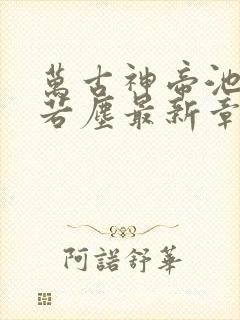 萬古神帝池
若塵最新章
阿諾舒華